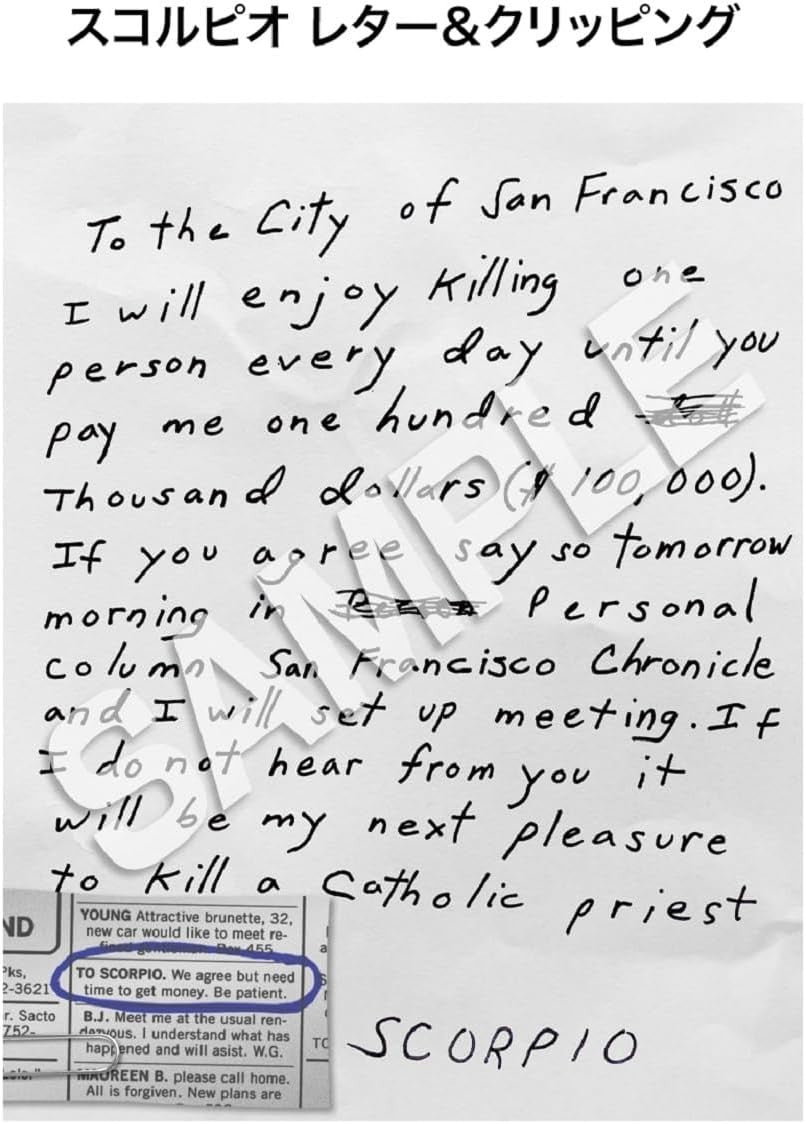 スコルピオ レター&クリッピング
To the City of San Francisco
I will enjoy killing one
person every day until you
pay me one hundred
Thousand dollars ($100,000).
If you agree say so tomorrow
morning in Personal
column San Francisco Chronicle
and I will set up meeting. If
I do not hear from you it
will be my next pleasure
to kill a Catholic priest
SCORPIO
SAMPLE
ND
Pks,
2-3621
r. Sacto
752-
YOUNG Attractive brunette, 32,
new car would like to meet re-
455
TO SCORPIO. We agree but need
time to get money. Be patient.
B.J. Meet me at the usual ren-
dezvous. I understand what has
happened and will asist. W.G.
MAUREEN B. please call home.
All is forgiven. New plans are
TO